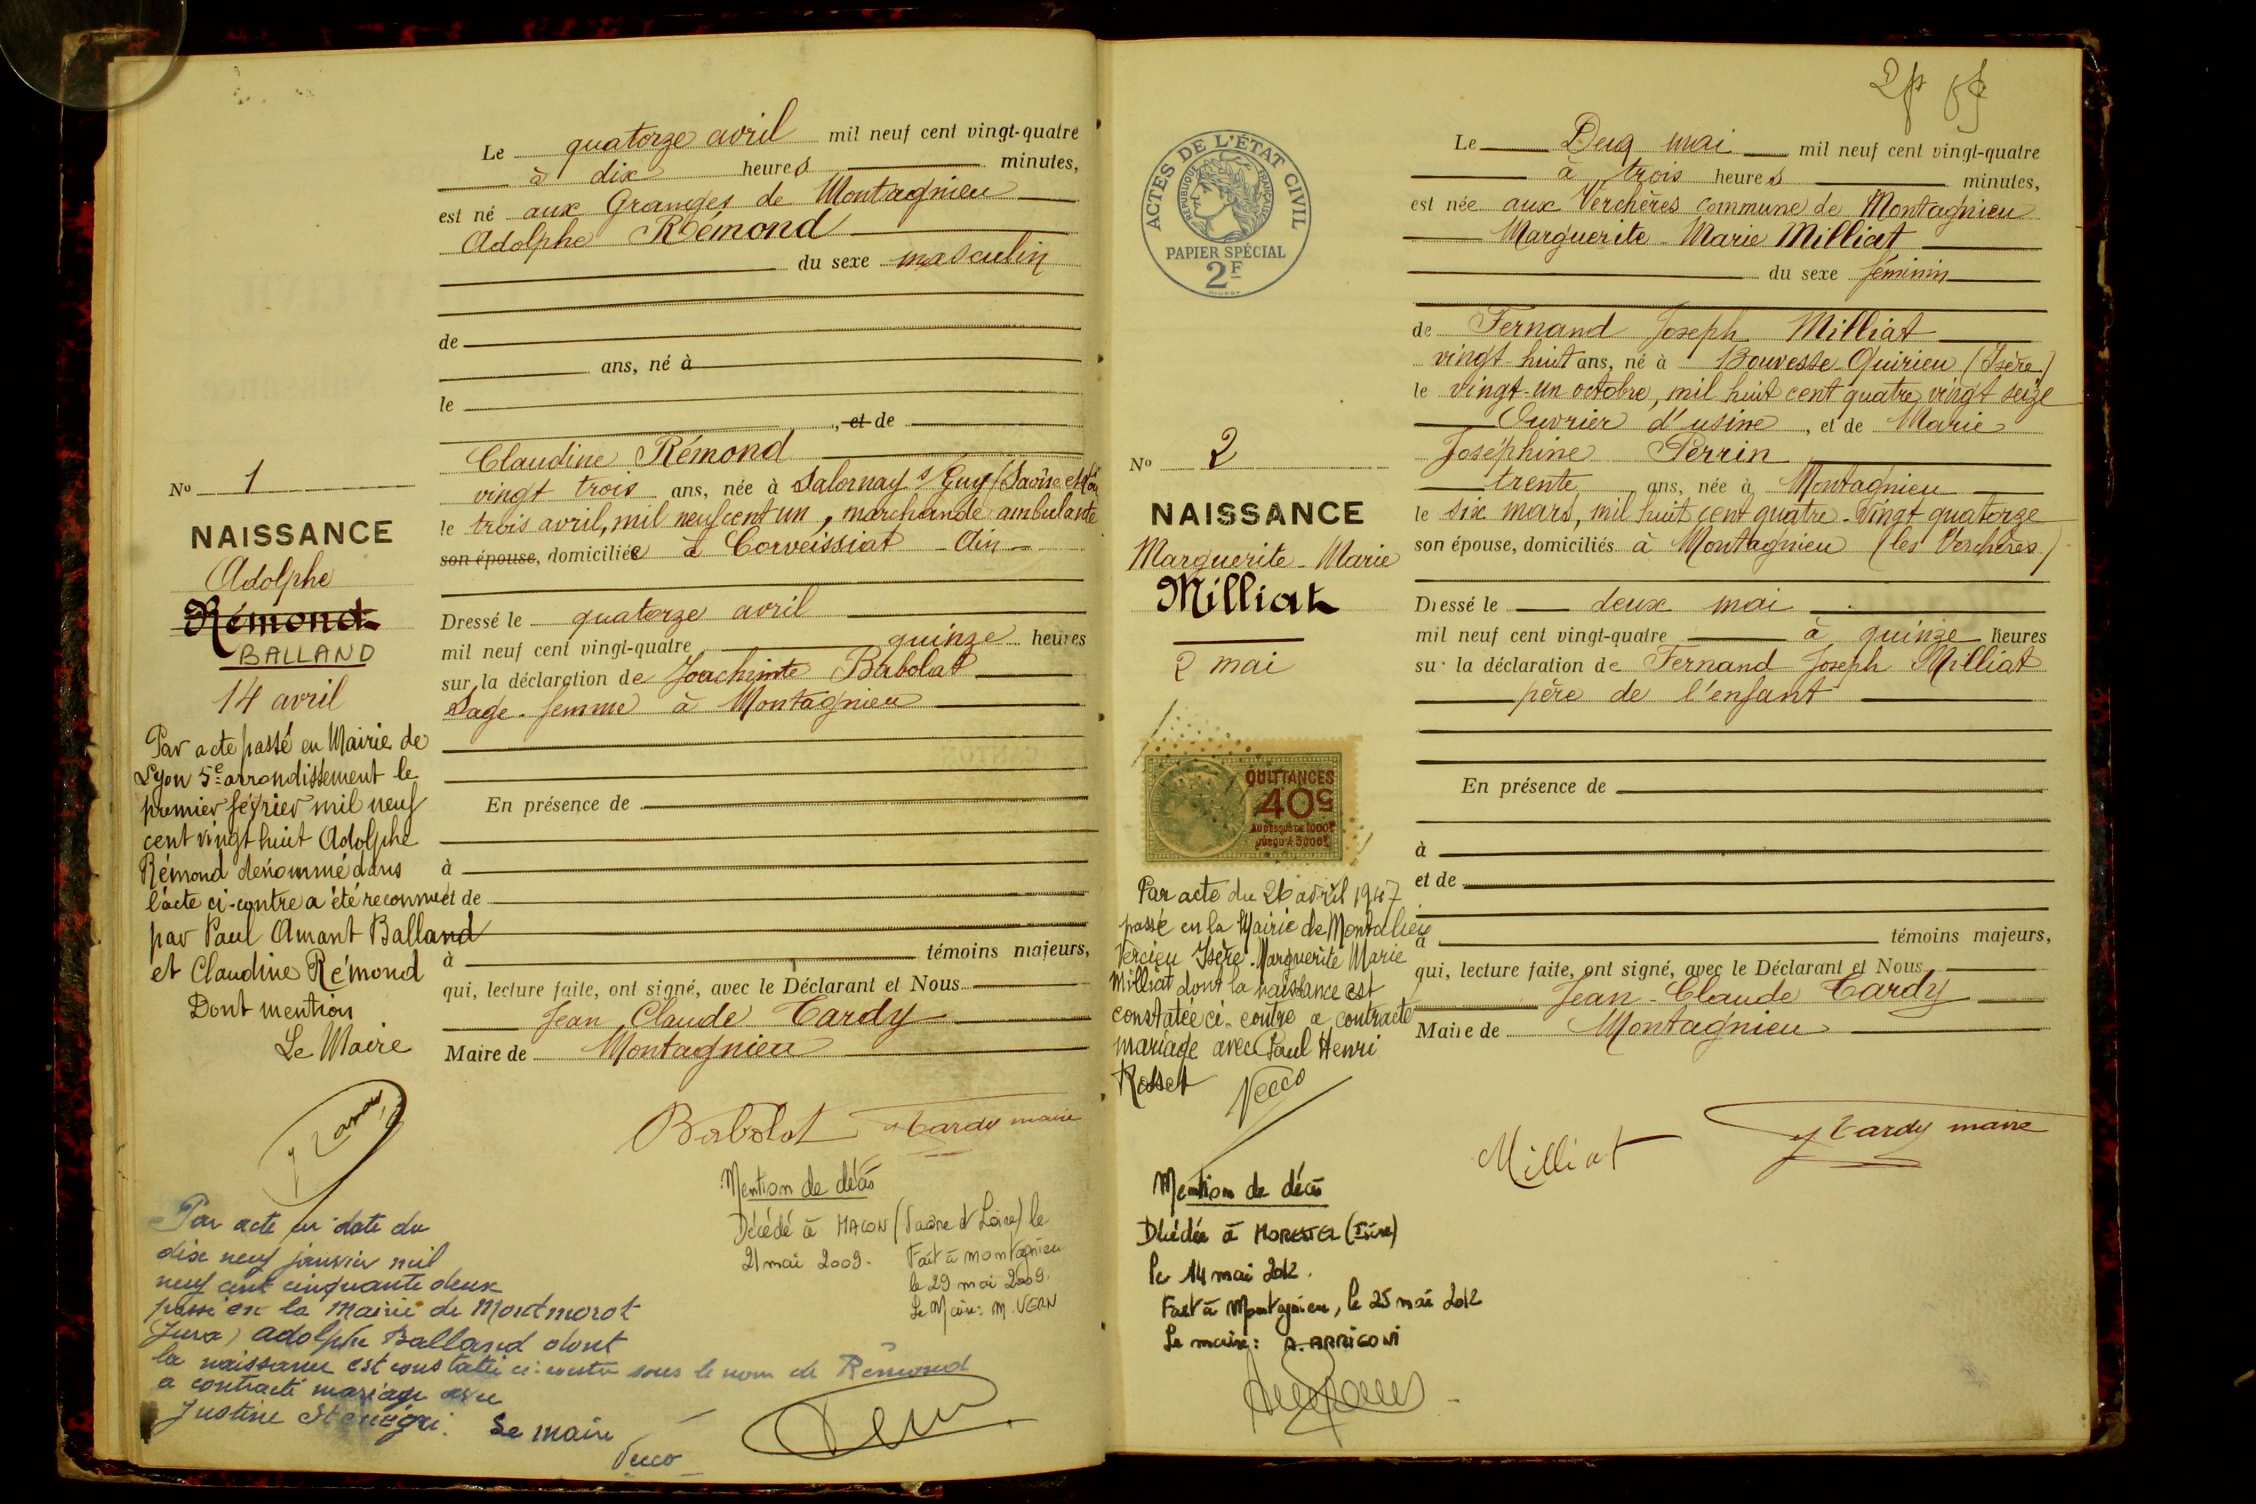 Le quatorze avril mil neuf cent vingt-quatre
à dix heures minutes,
est né aux Granges de Montagnieu
Adolphe Rémond
du sexe masculin
de
ans, né à
le
, et de
Claudine Rémond
vingt trois ans, née à Salornay s/ Guy (Saône et Loire
le trois avril, mil neuf cent un, marchande ambulante
son épouse, domiciliée à Corveissiat - Ain -
Dressé le quatorze avril
mil neuf cent vingt-quatre quinze heures
sur la déclaration de Babolat
Sage-femme à Montagnieu
En présence de
à
et de
à témoins majeurs,
qui, lecture faite, ont signé, avec le Déclarant et Nous
Jean Claude Tardy
Maire de Montagnieu
Babolat Tardy maire
No 1
NAISSANCE
Adolphe
Rémond
BALLAND
14 avril
Par acte passé en Mairie de
Lyon 5e arrondissement le
premier février mil neuf
cent vingt huit Adolphe
Rémond dénommé dans
l'acte ci-contre a été reconnu
par Paul Amant Balland
et Claudine Rémond
Dont mention
Le Maire
Par acte en date du
dix neuf janvier mil
neuf cent cinquante deux
passé en la Mairie de Montmorot
(Jura) Adolphe Balland dont
la naissance est constatée ci-contre sous le nom de Rémond
a contracté mariage avec
Justine
Le maire
Vecco
Mention de décès
Décédé à MACON (Saône et Loire) le
21 mai 2009. Fait à Montagnieu
le 29 mai 2009.
Le Maire: M. VERN
2
Le Deux mai mil neuf cent vingt-quatre
à trois heures minutes,
est née aux Verchères commune de Montagnieu
Marguerite-Marie Milliat
du sexe féminin
de Fernand Joseph Milliat
vingt-huit ans, né à Bouvesse-Quirieu (Isère)
le vingt-un octobre, mil huit cent quatre vingt seize
Ouvrier d'usine, et de Marie
Joséphine Perrin
trente ans, née à Montagnieu
le six mars, mil huit cent quatre-vingt quatorze
son épouse, domiciliés à Montagnieu (les Verchères)
Dressé le deux mai
mil neuf cent vingt-quatre à quinze heures
sur la déclaration de Fernand Joseph Milliat
père de l'enfant
En présence de
à
et de
à témoins majeurs,
qui, lecture faite, ont signé, avec le Déclarant et Nous
Jean-Claude Tardy
Maire de Montagnieu
Milliat Tardy maire
ACTES DE L'ÉTAT CIVIL
RÉPUBLIQUE FRANÇAISE
PAPIER SPÉCIAL
2F
No 2
NAISSANCE
Marguerite-Marie
Milliat
2 mai
QUITTANCES
40c
AU DESSUS DE 1000F
JUSQU'À 3000F
Par acte du 26 avril 1947
passé en la Mairie de Montalieu
Vercieu Isère. Marguerite Marie
Milliat dont la naissance est
constatée ci-contre a contracté
mariage avec Paul Henri
Rosset
Vecco
Mention de décès
Décédée à MORESTEL (Isère)
le 14 mai 2012.
Fait à Montagnieu, le 25 mai 2012
Le maire: A. ARRIGONI